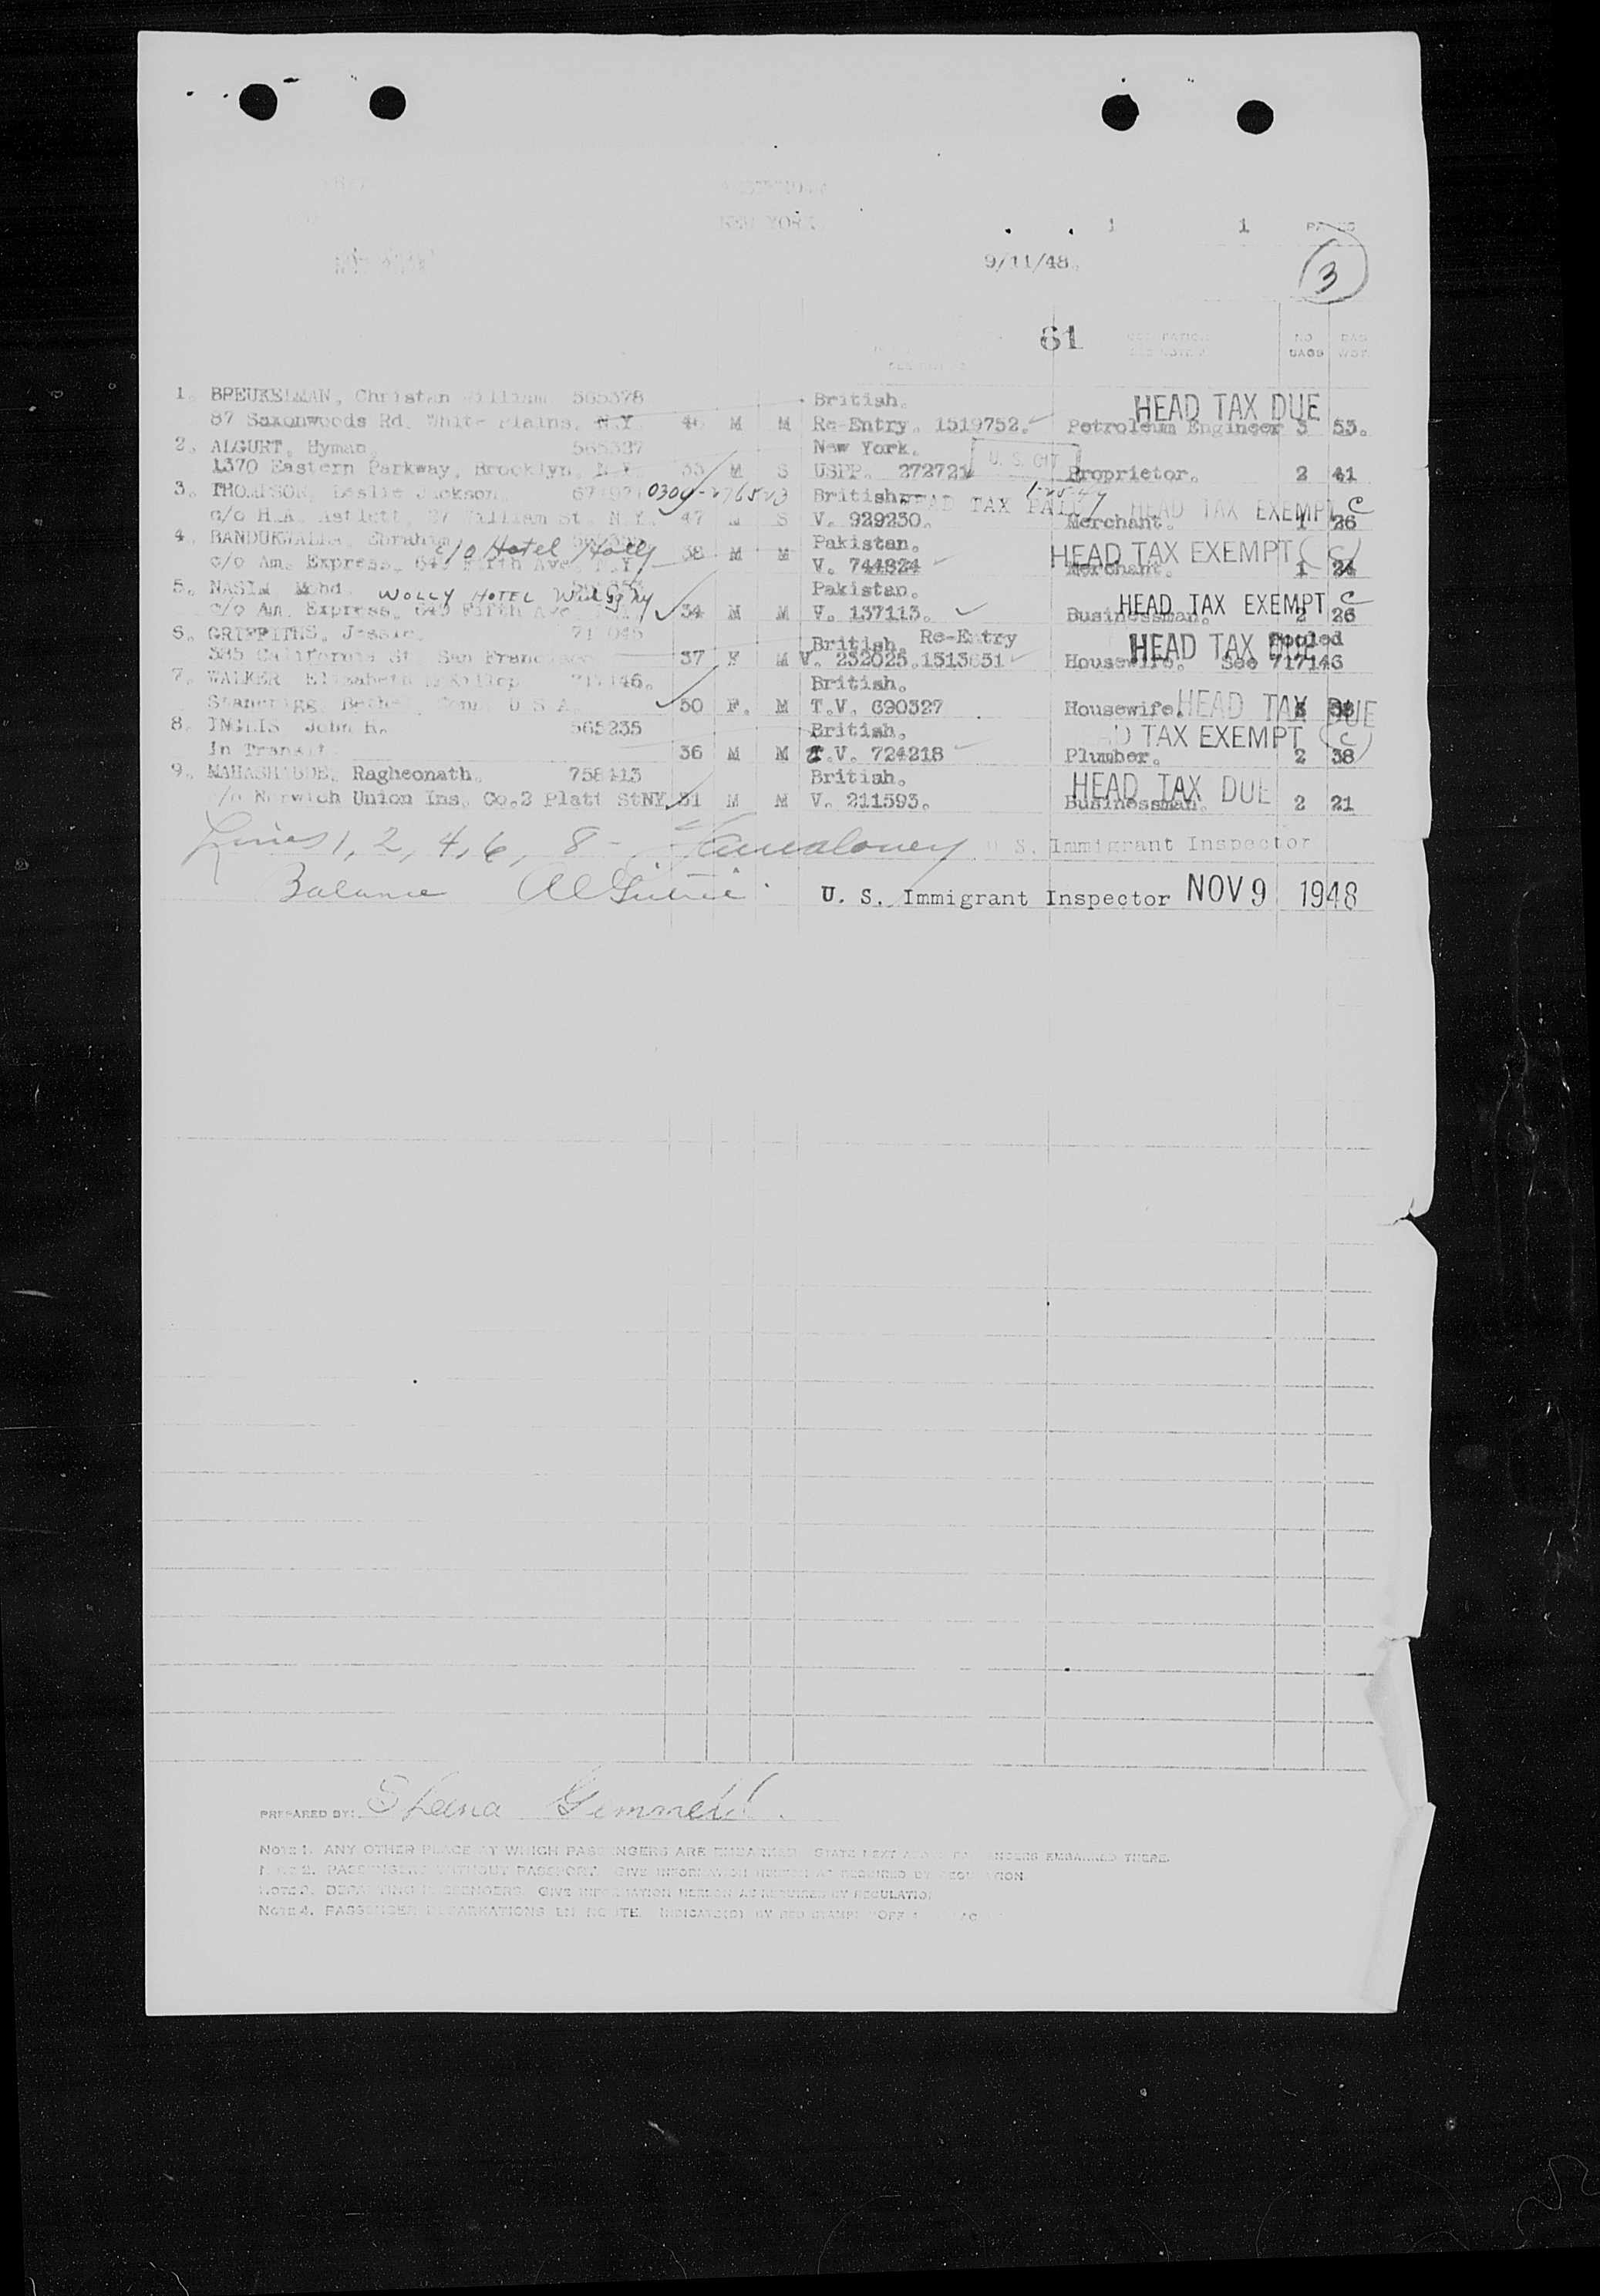 NEW YORK
1 1
9/11/48.
3
61
NO BAGS
1. BREUKELMAN, Christan William 565378 British. HEAD TAX DUE
87 Saxonwoods Rd. White Plains, N.Y. 46 M M Re-Entry. 1519752. Petroleum Engineer 3 53.
2. ALGURT, Hyman. New York. U. S. CIT
1370 Eastern Parkway, Brooklyn, N.Y. 33 M S USPP. 272721 Proprietor. 2 41
3. THOMPSON, Leslie Jackson. British. HEAD TAX PAID HEAD TAX EXEMPT C
c/o H.A. Astlett, 27 William St. N.Y. 47 M S V. 929230. Merchant. 1 26
4. BANDUKWALLA, Ebrahim c/o Hotel Pakistan. HEAD TAX EXEMPT (C)
c/o Am. Express, 649 Fifth Ave. N.Y. 38 M M V. 744824 Merchant. 1 24
5. NASIM Mohd. WOLLY HOTEL Pakistan. HEAD TAX EXEMPT C
c/o Am. Express, 649 Fifth Ave. 34 M M V. 137113. Businessman. 2 26
6. GRIFFITHS, Jessie. British. Re-Entry HEAD TAX DUE Pooled
585 California St. San Francisco 37 F M V. 232025. Housewife. See 717146
7. WALKER Elizabeth McKillop 717146. British.
Bethel, Conn. U S A. 50 F. M T.V. 690327 Housewife. HEAD TAX DUE
8. INGLIS John R. 565235 British. HEAD TAX EXEMPT (C)
In Transit. 36 M M T.V. 724218 Plumber. 2 38
9. Ragheonath. 758413 British. HEAD TAX DUE
c/o Norwich Union Ins. Co. 2 Platt St NY 31 M M V. 211593. Businessman. 2 21
Lines 1, 2, 4, 6, 8 - U. S. Immigrant Inspector
Balance U. S. Immigrant Inspector NOV 9 1948
PREPARED BY: Sheina Gemmell.
NOTE 1. ANY OTHER PLACE AT WHICH PASSENGERS ARE EMBARKED STATE NEXT PASSENGERS EMBARKED THERE.
NOTE 2. PASSENGERS WITHOUT PASSPORT. GIVE INFORMATION HEREON AS REQUIRED BY REGULATION
NOTE 3. DEPARTING PASSENGERS. GIVE INFORMATION HEREON AS REQUIRED BY REGULATION
NOTE 4. PASSENGER DEBARKATIONS EN ROUTE. INDICATE(D) BY RED STAMP "OFF